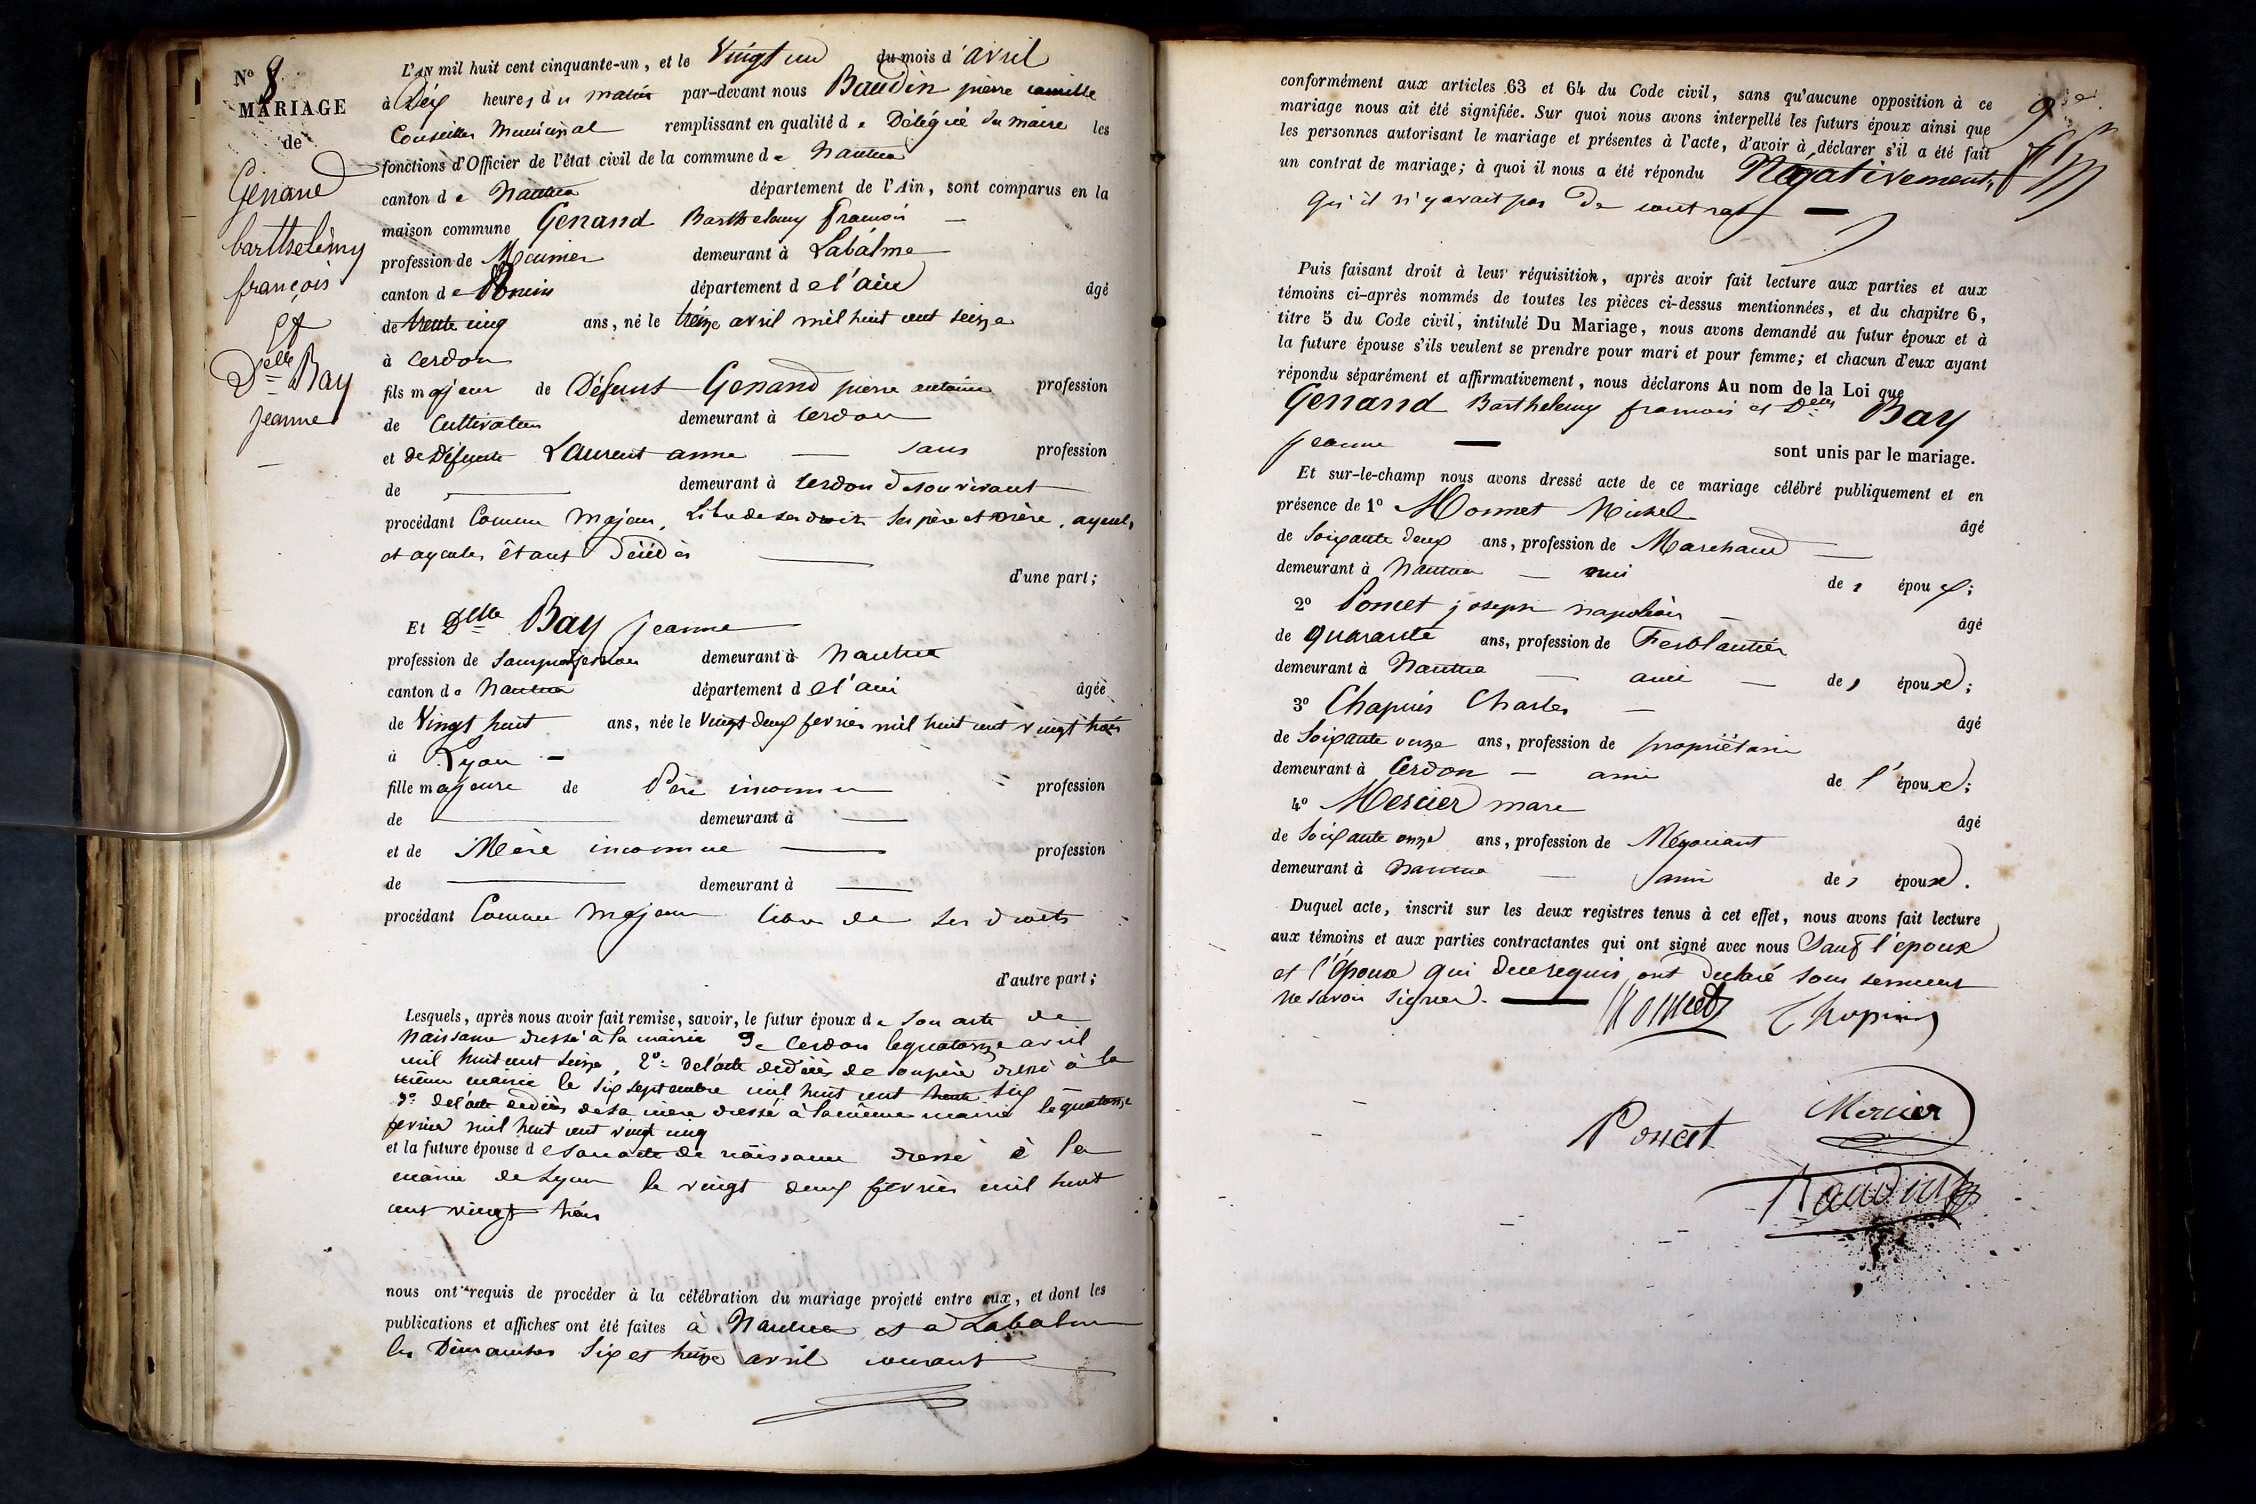 No 8
MARIAGE
de
Genand
barthelémy
françois
et
Delle Bay
jeanne
L'AN mil huit cent cinquante-un, et le Vingt un du mois d'avril
à Dix heures du matin par-devant nous Baudin pierre camille
Conseiller Municipal remplissant en qualité de Délégué du maire les
fonctions d'Officier de l'état civil de la commune de Nantua
canton de Nantua département de l'Ain, sont comparus en la
maison commune Genand Barthelemy françois
profession de Meunier demeurant à Labalme
canton de Poncin département de l'ain âgé
de trente cinq ans, né le treize avril mil huit cent seize
à Cerdon
fils majeur de Défunt Genand pierre antoine profession
de Cultivateur demeurant à Cerdon
et de Défunte Laurent anne sans profession
de demeurant à Cerdon de son vivant
procédant Comme Majeur, Libre de ses droits Ses père et mère, ayeuls
et ayeules étant Décédés
d'une part;
Et Delle Bay jeanne
profession de demeurant à Nantua
canton de Nantua département de l'ain âgée
de Vingt huit ans, née le Vingt deux fevrier mil huit cent vingt trois
à Lyon
fille majeure de Père inconnu profession
de demeurant à
et de Mère inconnue profession
de demeurant à
procédant Comme Majeure libre de ses droits
d'autre part;
Lesquels, après nous avoir fait remise, savoir, le futur époux de Son acte de
Naissance dressé à la mairie de Cerdon le quatorze avril
mil huit cent seize, 2o de l'acte de décès de son père dressé à la
même mairie le six septembre mil huit cent trente six
3o de l'acte de décès de sa mère dressé à la même mairie le quatorze
fevrier mil huit cent vingt cinq
et la future épouse de son acte de naissance dressé à la
mairie de Lyon le vingt deux fevrier mil huit
cent vingt trois
nous ont requis de procéder à la célébration du mariage projeté entre eux, et dont les
publications et affiches ont été faites à Nantua et à Labalme
les Dimanches Six et treize avril courant
conformément aux articles 63 et 64 du Code civil, sans qu'aucune opposition à ce
mariage nous ait été signifiée. Sur quoi nous avons interpellé les futurs époux ainsi que
les personnes autorisant le mariage et présentes à l'acte, d'avoir à déclarer s'il a été fait
un contrat de mariage; à quoi il nous a été répondu Négativement,
qu'il n'y avait pas de contrat
Puis faisant droit à leur réquisition, après avoir fait lecture aux parties et aux
témoins ci-après nommés de toutes les pièces ci-dessus mentionnées, et du chapitre 6,
titre 5 du Code civil, intitulé Du Mariage, nous avons demandé au futur époux et à
la future épouse s'ils veulent se prendre pour mari et pour femme; et chacun d'eux ayant
répondu séparément et affirmativement, nous déclarons Au nom de la Loi que
Genand Barthelemy françois et Delle Bay
jeanne sont unis par le mariage.
Et sur-le-champ nous avons dressé acte de ce mariage célébré publiquement et en
présence de 1o Monnet Michel âgé
de Soixante deux ans, profession de Marchand
demeurant à Nantua ami de l' époux;
2o Poncet joseph napoléon âgé
de quarante ans, profession de Ferblantier
demeurant à Nantua ami de l' époux;
3o Chapuis Charles âgé
de Soixante onze ans, profession de propriétaire
demeurant à Cerdon ami de l' époux;
4o Mercier marc âgé
de Soixante onze ans, profession de Négociant
demeurant à Nantua ami de l' époux.
Duquel acte, inscrit sur les deux registres tenus à cet effet, nous avons fait lecture
aux témoins et aux parties contractantes qui ont signé avec nous Sauf l'époux
et l'épouse qui de ce requis ont déclaré sous serment
ne savoir signer.
Monnet Chapuis
Mercier
Poncet
Baudin